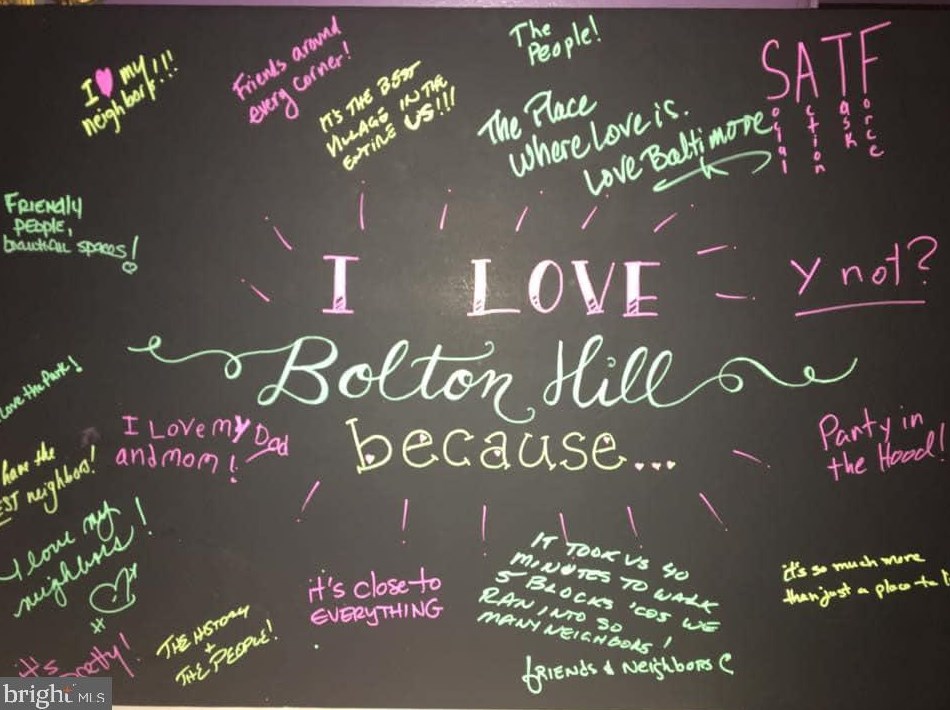 I ♥ my
neighbors!!!
Friends around
every corner!
IT'S THE BEST
VILLAGE IN THE
ENTIRE US!!!
The
People!
The Place
Where Love is.
Love Baltimore
SATF
Social
Action
Task
Force
FRIENDLY
PEOPLE,
beautiful spaces!
I LOVE
Y not?
Bolton Hill
because...
Love the Park!
I Love my Dad
and mom!
have the
EST neighbors!
Party in
the Hood!
I love my
neighbors!
it's close to
EVERYTHING
IT TOOK US 40
MINUTES TO WALK
5 BLOCKS 'COS WE
RAN INTO SO
MANY NEIGHBORS!
friends & Neighbors
it's so much more
than just a place to
THE HISTORY
+
THE PEOPLE!
it's
pretty!
bright MLS